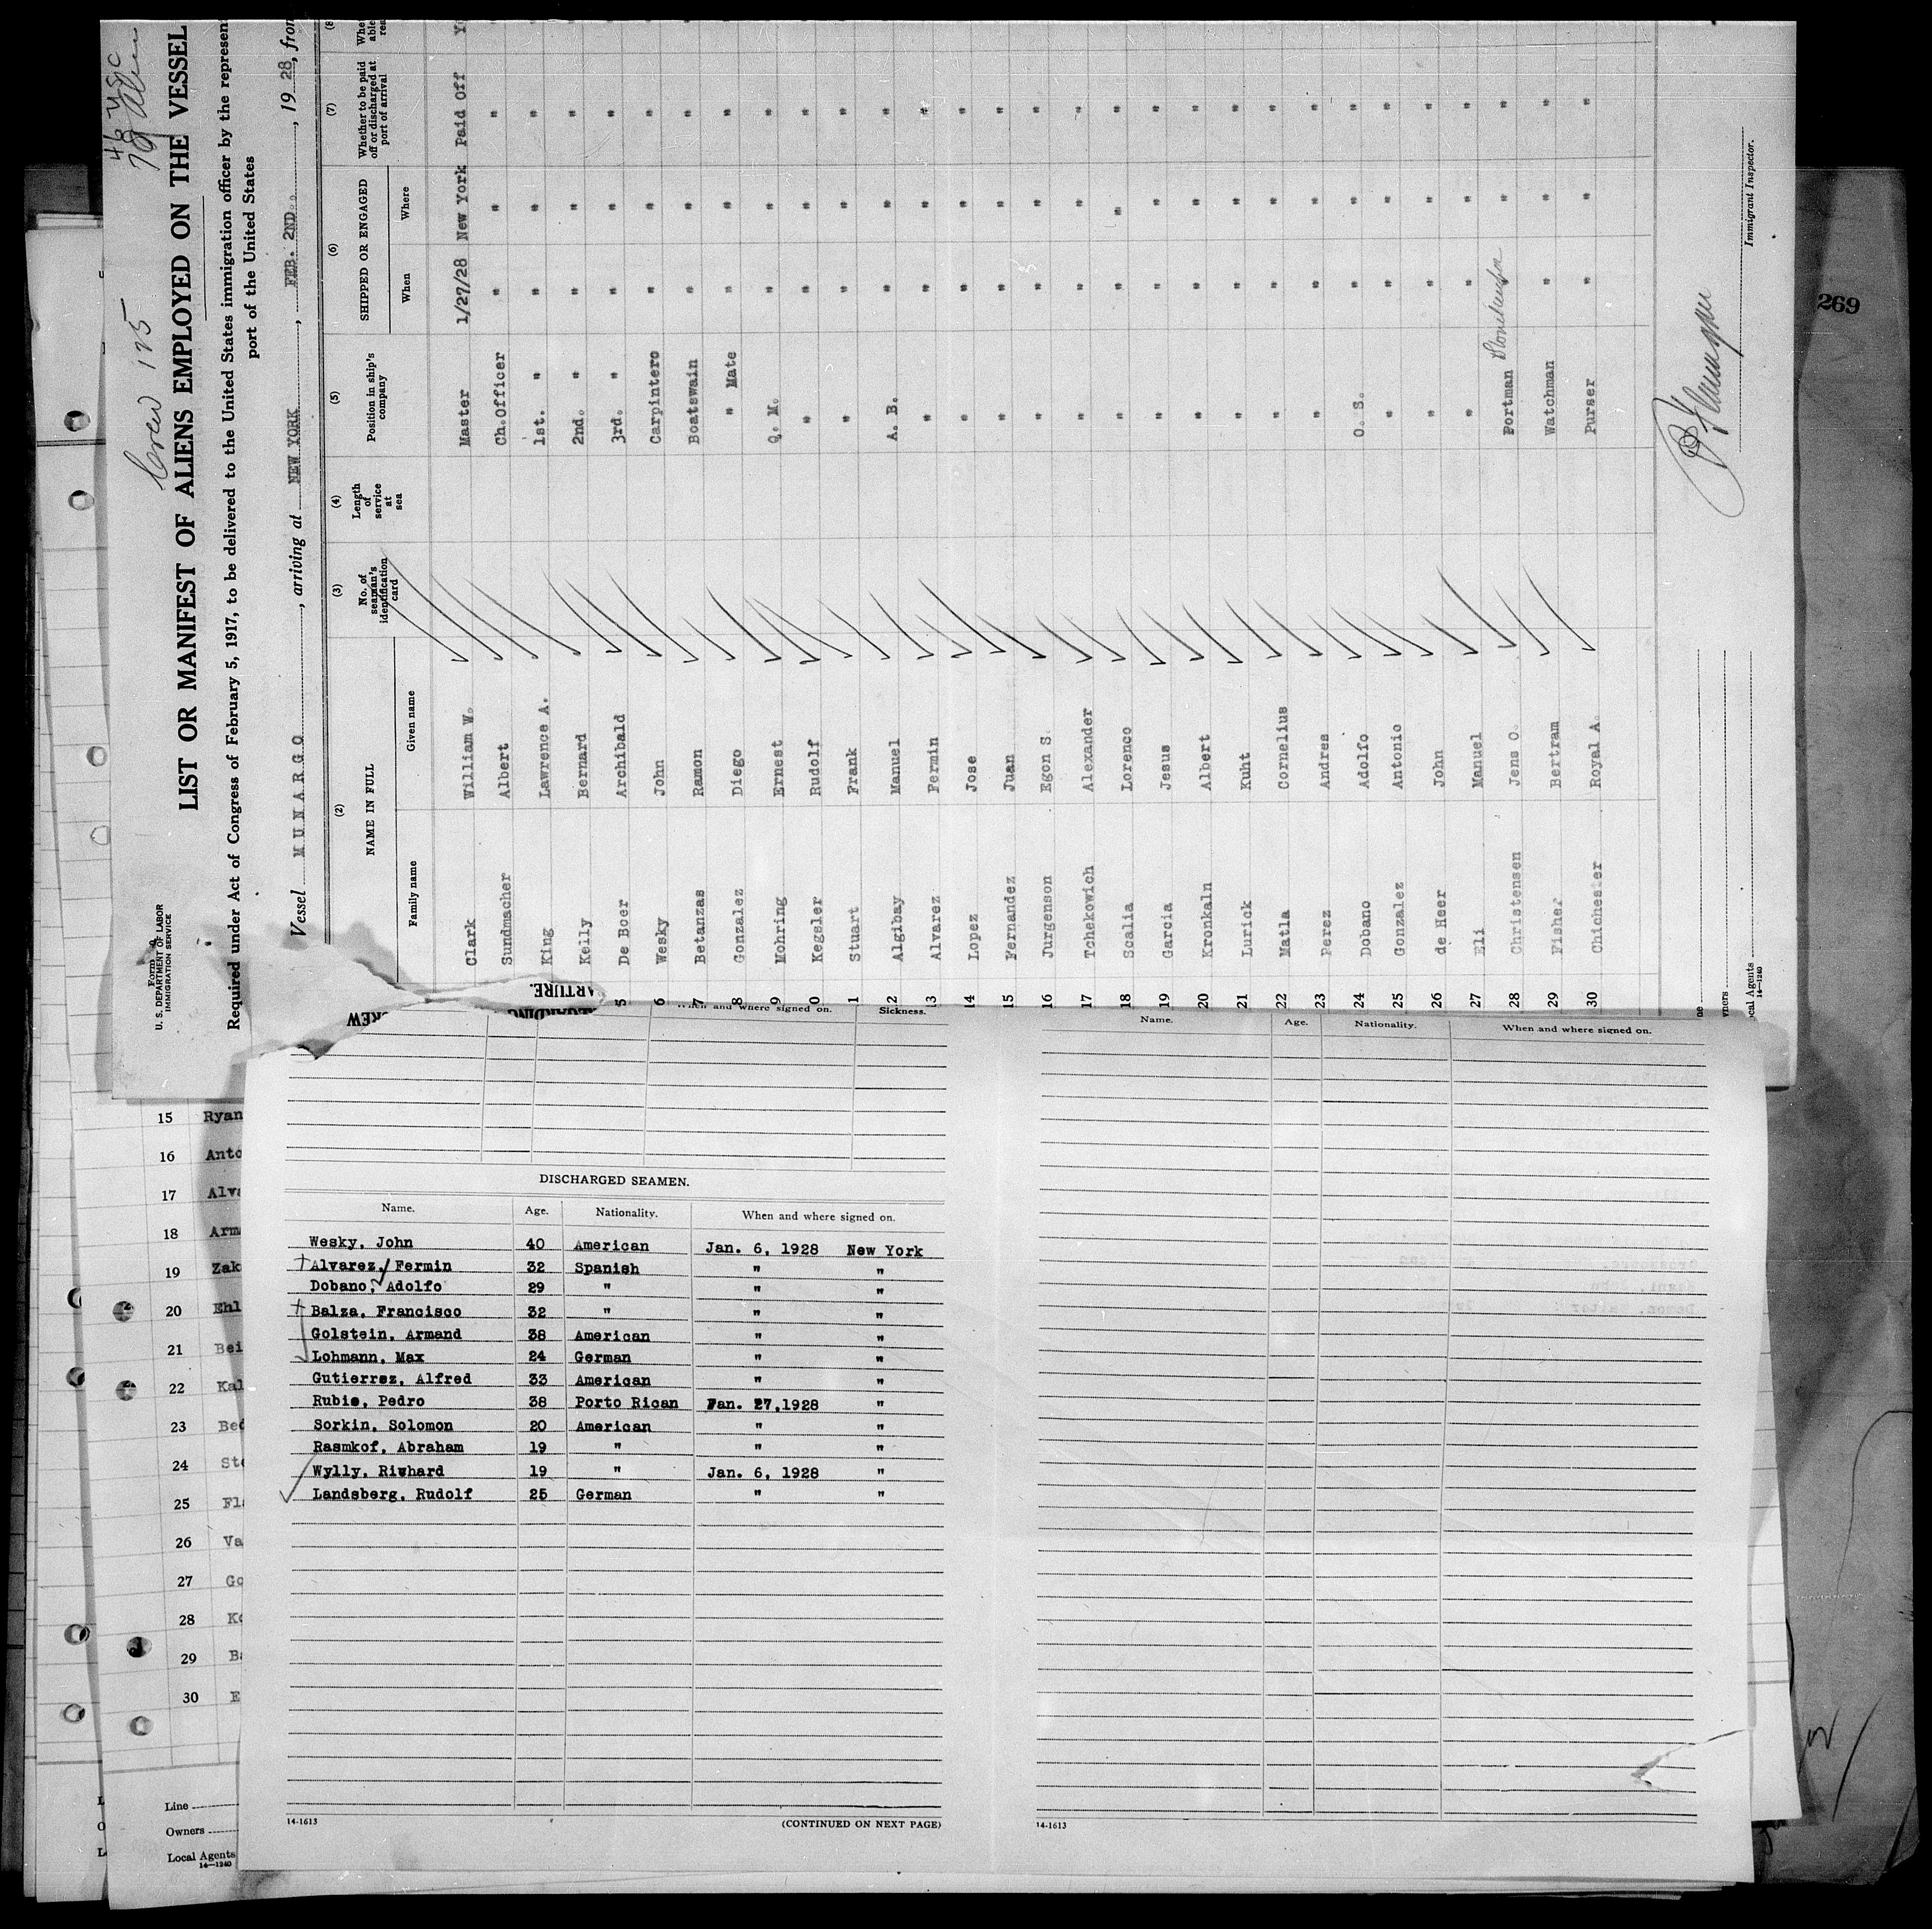 Form
U. S. DEPARTMENT OF LABOR
IMMIGRATION SERVICE
LIST OR MANIFEST OF ALIENS EMPLOYED ON THE VESSEL
Required under Act of Congress of February 5, 1917, to be delivered to the United States immigration officer by the represen
port of the United States
Vessel MUNARGO, arriving at NEW YORK, FEB. 2ND., 19 28, from
(2) (3) (4) (5) (6) (7) (8
NAME IN FULL No. of seaman's identification card Length of service at sea Position in ship's company SHIPPED OR ENGAGED Whether to be paid off or discharged at port of arrival Whe able rea
Family name Given name When Where
Clark William W. Master 1/27/28 New York Paid Off Y
Sundmacher Albert Ch.Officer " " "
King Lawrence A. 1st. " " " "
Kelly Bernard 2nd. " " " "
5 De Boer Archibald 3rd. " " " "
6 Wesky John Carpintero " " "
7 Betanzas Ramon Boatswain " " "
8 Gonzalez Diego " Mate " " "
9 Mohring Ernest Q. M. " " "
0 Kegsler Rudolf " " " "
1 Stuart Frank " " " "
12 Algibay Manuel A. B. " " "
13 Alvarez Fermin " " " "
14 Lopez Jose " " " "
15 Fernandez Juan " " " "
16 Jurgenson Egon S. " " " "
17 Tchekowich Alexander " " " "
18 Scalia Lorenco " " " "
19 Garcia Jesus " " " "
20 Kronkaln Albert " " " "
21 Lurick Kuht " " " "
22 Matla Cornelius " " " "
23 Perez Andres " " " "
24 Dobano Adolfo O. S. " " "
25 Gonzalez Antonio " " " "
26 de Heer John " " " "
27 Eli Manuel " " " "
28 Christensen Jens O. Portman " "
29 Fisher Bertram Watchman " " "
30 Chichester Royal A. Purser " " "
Immigrant Inspector.
ne
wners
cal Agents
14-1240
269
ARTURE.
EGARDING
CREW
When and where signed on. Sickness.
DISCHARGED SEAMEN.
Name. Age. Nationality. When and where signed on.
Wesky, John 40 American Jan. 6, 1928 New York
Alvarez, Fermin 32 Spanish " "
Dobano, Adolfo 29 " " "
Balza, Francisco 32 " " "
Golstein, Armand 38 American " "
Lohmann, Max 24 German " "
Gutierrez, Alfred 33 American " "
Rubie, Pedro 38 Porto Rican Jan. 27,1928 "
Sorkin, Solomon 20 American " "
Rasmkof, Abraham 19 " " "
Wylly, Riwhard 19 " Jan. 6, 1928 "
Landsberg, Rudolf 25 German " "
14-1613
(CONTINUED ON NEXT PAGE)
Name. Age. Nationality. When and where signed on.
14-1613
15 Ryan
16 Anto
17 Alva
18 Arm
19 Zak
20 Ehl
21 Bei
22 Kal
23 Bed
24 Ste
25 Fl
26 Va
27 Go
28 Ko
29 Ba
30 E
Line
Owners
Local Agents
14-1240